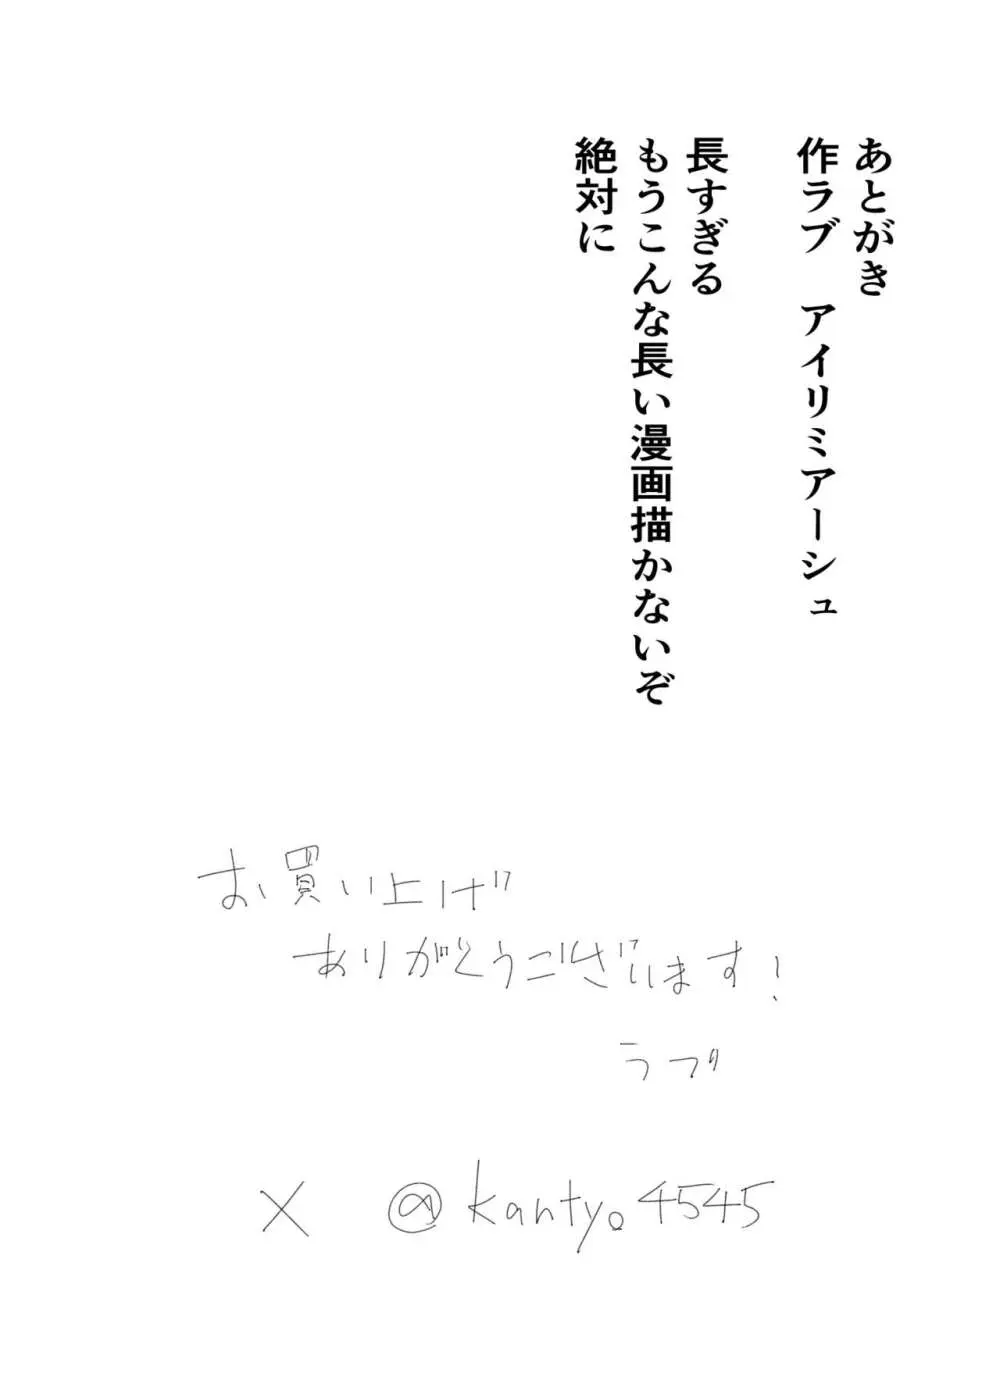 あとがき
作ラブ　アイリミアーシュ
長すぎる
もうこんな長い漫画描かないぞ
絶対に
お買い上げ
ありがとうございます!
ラブ
X @kantyo4545